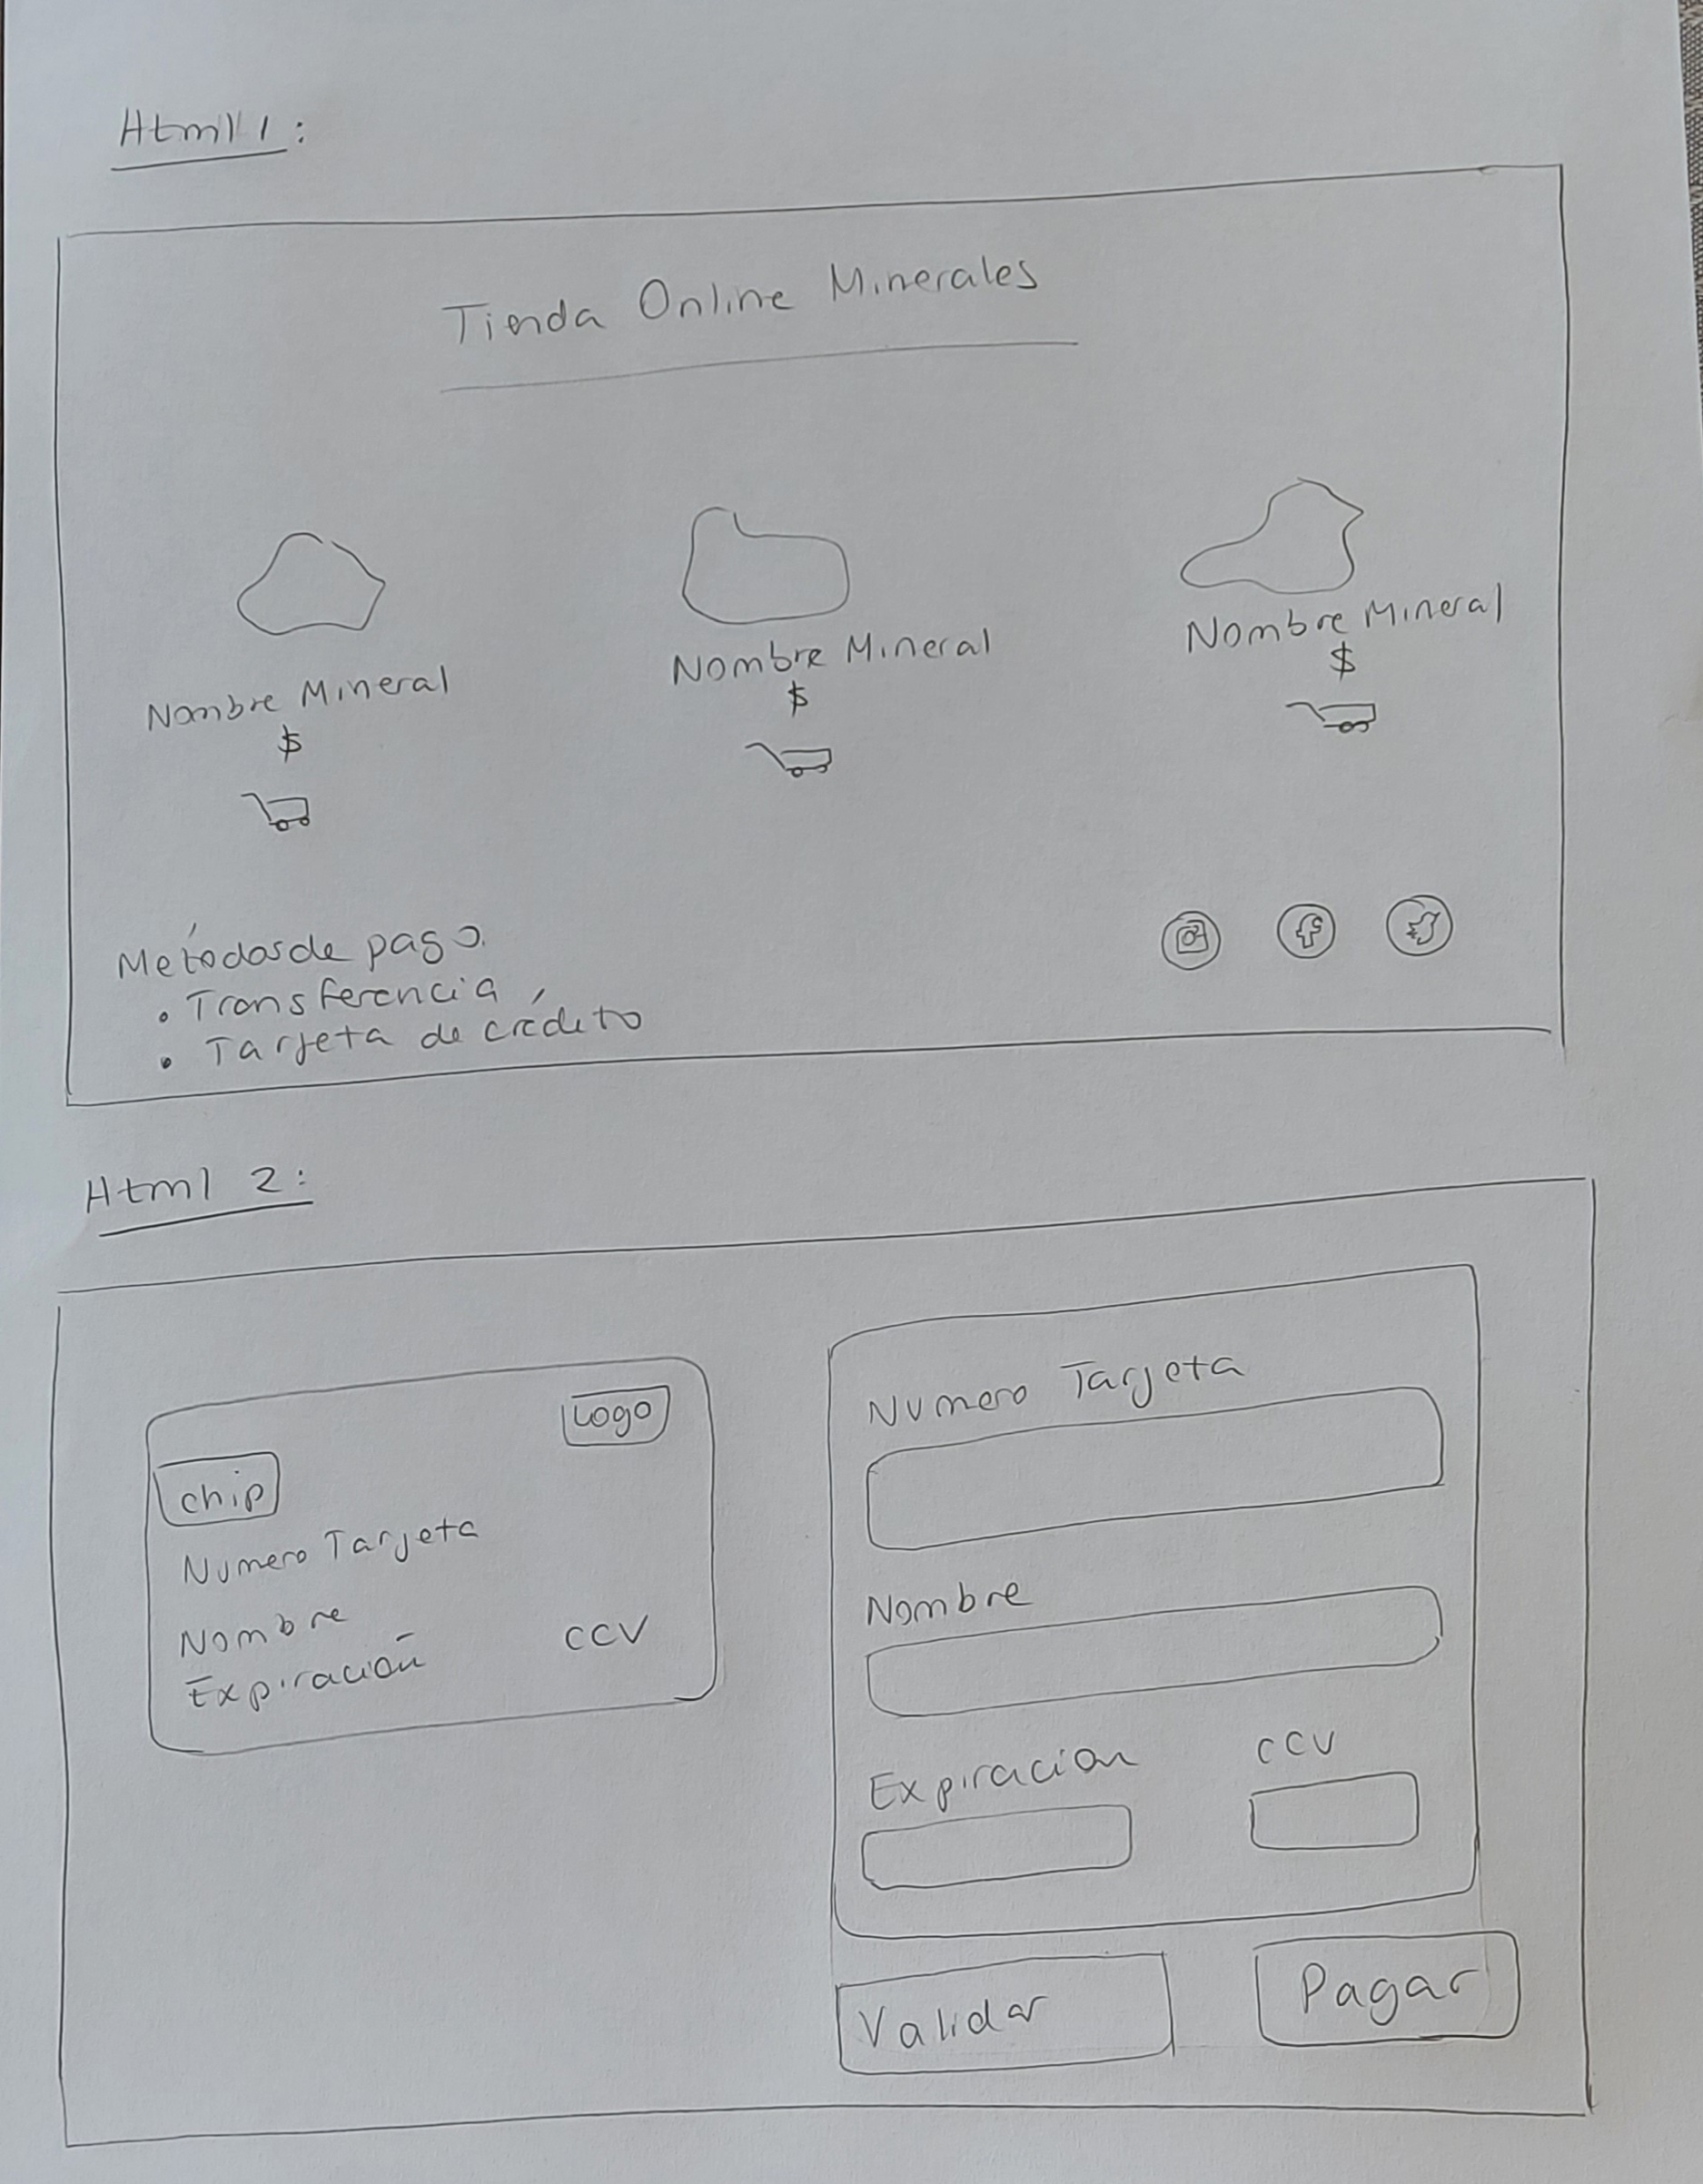 Html 1:
Tienda Online Minerales
Nombre Mineral
$
Nombre Mineral
$
Nombre Mineral
$
Metódos de pago.
• Transferencia
• Tarjeta de crédito
Html 2:
Logo
chip
Numero Tarjeta
Nombre
Expiración
CCV
Numero Tarjeta
Nombre
Expiracion
CCV
Validar
Pagar